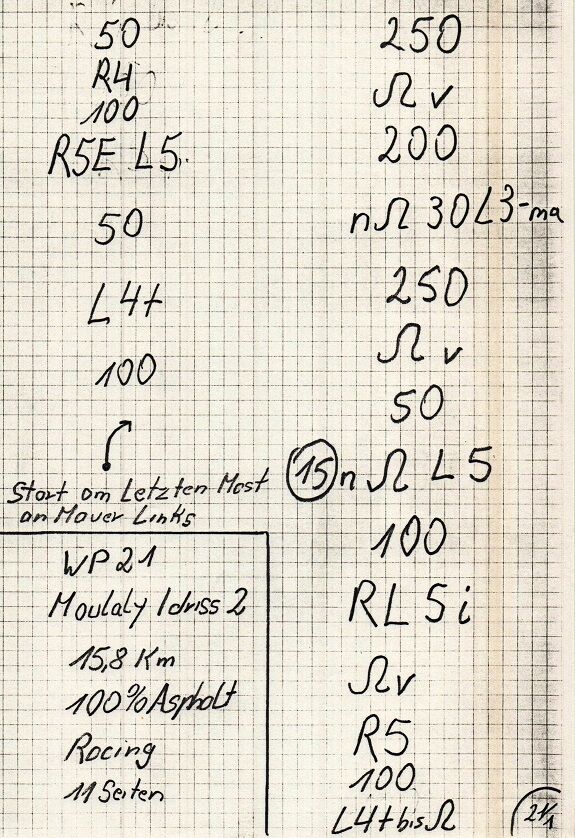 50
R4
100
R5E L5
50
L4+
100
Start am Letzten Mast
an Mauer Links
WP 21
Moulaly Idriss 2
15,8 Km
100% Asphalt
Racing
11 Seiten
250
Ω v
200
nΩ 30 L3-ma
250
Ω v
50
15 nΩ L5
100
RL5i
Ωv
R5
100
L4+bisΩ
21/1